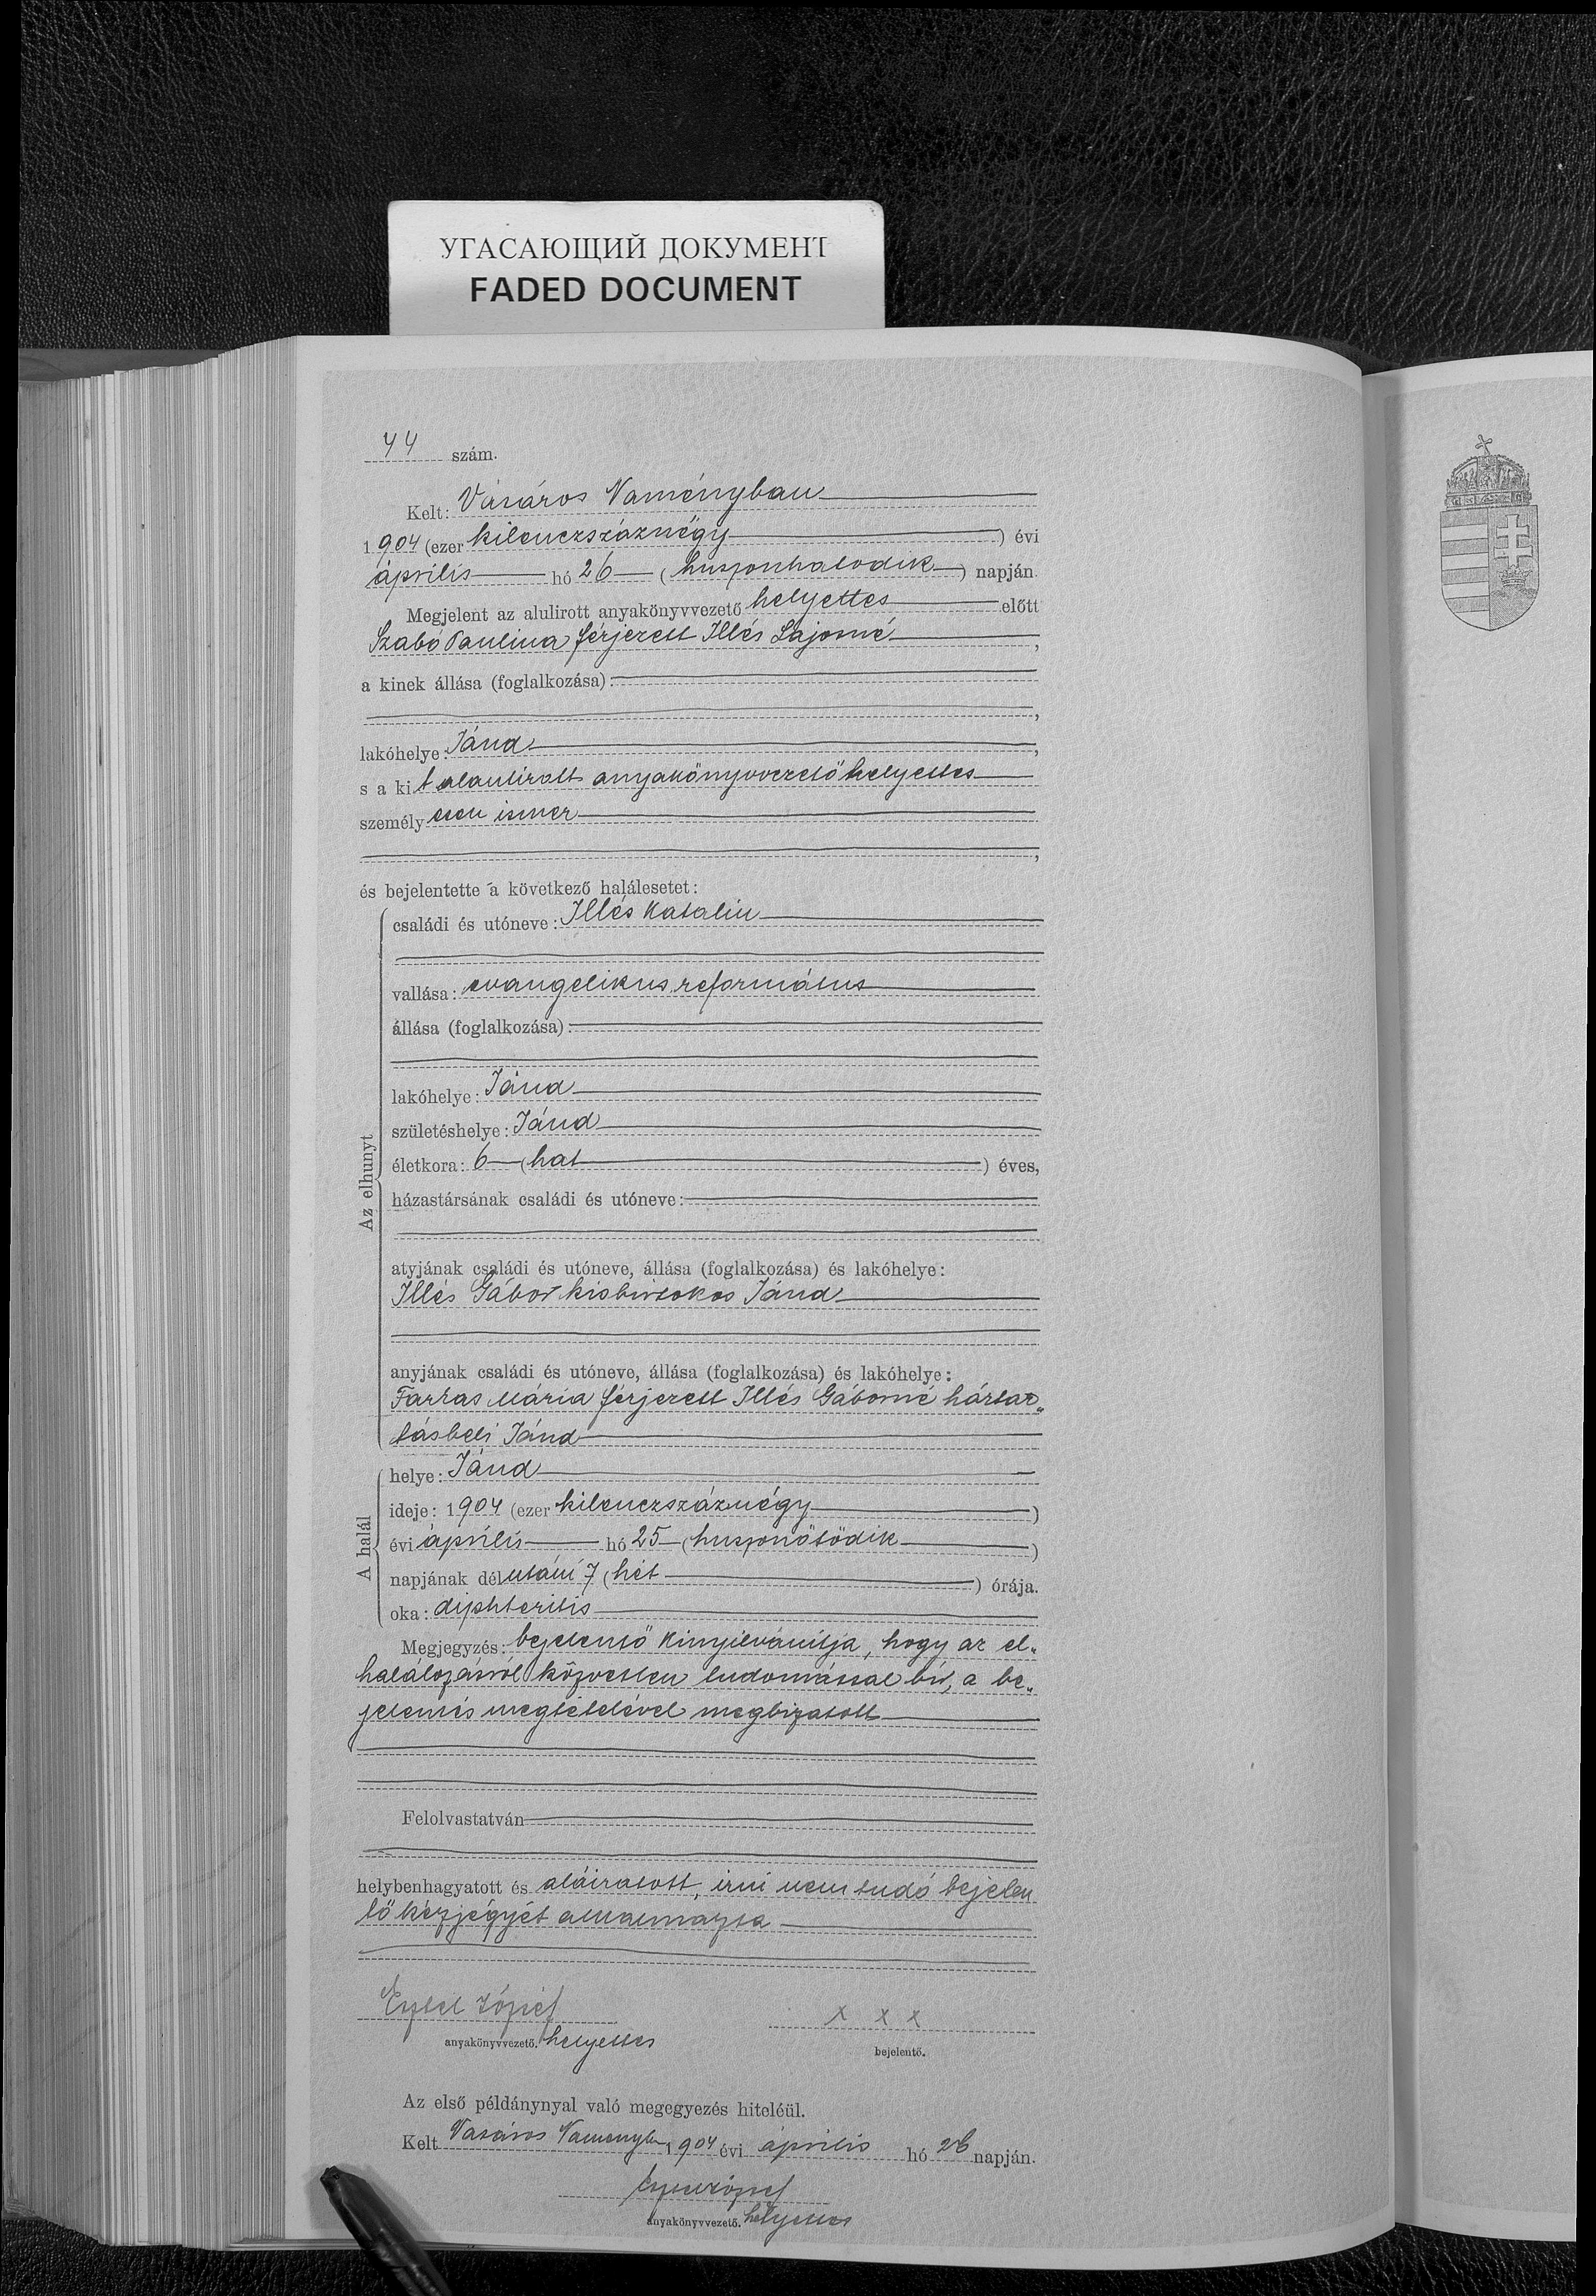 УГАСАЮЩИЙ ДОКУМЕНТ
FADED DOCUMENT
44 szám.
Kelt: Vásáros Naményban
1904 (ezer kilenczszáznégy) évi
április hó 26 (huszonhatodik) napján
Megjelent az alulirott anyakönyvvezető helyettes előtt
Szabó Paulina férjezett Illés Lajosné,
a kinek állása (foglalkozása):
lakóhelye: Jánd,
s a kit alantirott anyakönyvvezető helyettes
személyesen ismer
,
és bejelentette a következő halálesetet:
Az elhunyt
családi és utóneve: Illés Katalin
vallása: evangelikus református
állása (foglalkozása):
lakóhelye: Jánd
születéshelye: Jánd
életkora: 6 (hat) éves,
házastársának családi és utóneve:
atyjának családi és utóneve, állása (foglalkozása) és lakóhelye:
Illés Gábor kisbirtokos Jánd
anyjának családi és utóneve, állása (foglalkozása) és lakóhelye:
Farkas Mária férjezett Illés Gáborné háztar„
tásbeli Jánd
A halál
helye: Jánd
ideje: 1904 (ezer kilenczszáznégy)
évi április hó 25 (huszonötödik)
napjának délutáni 7 (hét) órája.
oka: diphteritis
Megjegyzés: bejelentő kinyilvánítja, hogy az el„
halálozásról közvetlen tudomással bir, a be„
jelentés megtételével megbizatott
Felolvastatván
helybenhagyatott és aláiratott, irni nem tudó bejelen
tő kézjegyét alkalmazta
József
anyakönyvvezető. helyettes
x x x
bejelentő.
Az első példánynyal való megegyezés hiteléül.
Kelt Vásáros Naményb 1904 évi április hó 26 napján.
József
anyakönyvvezető. helyettes